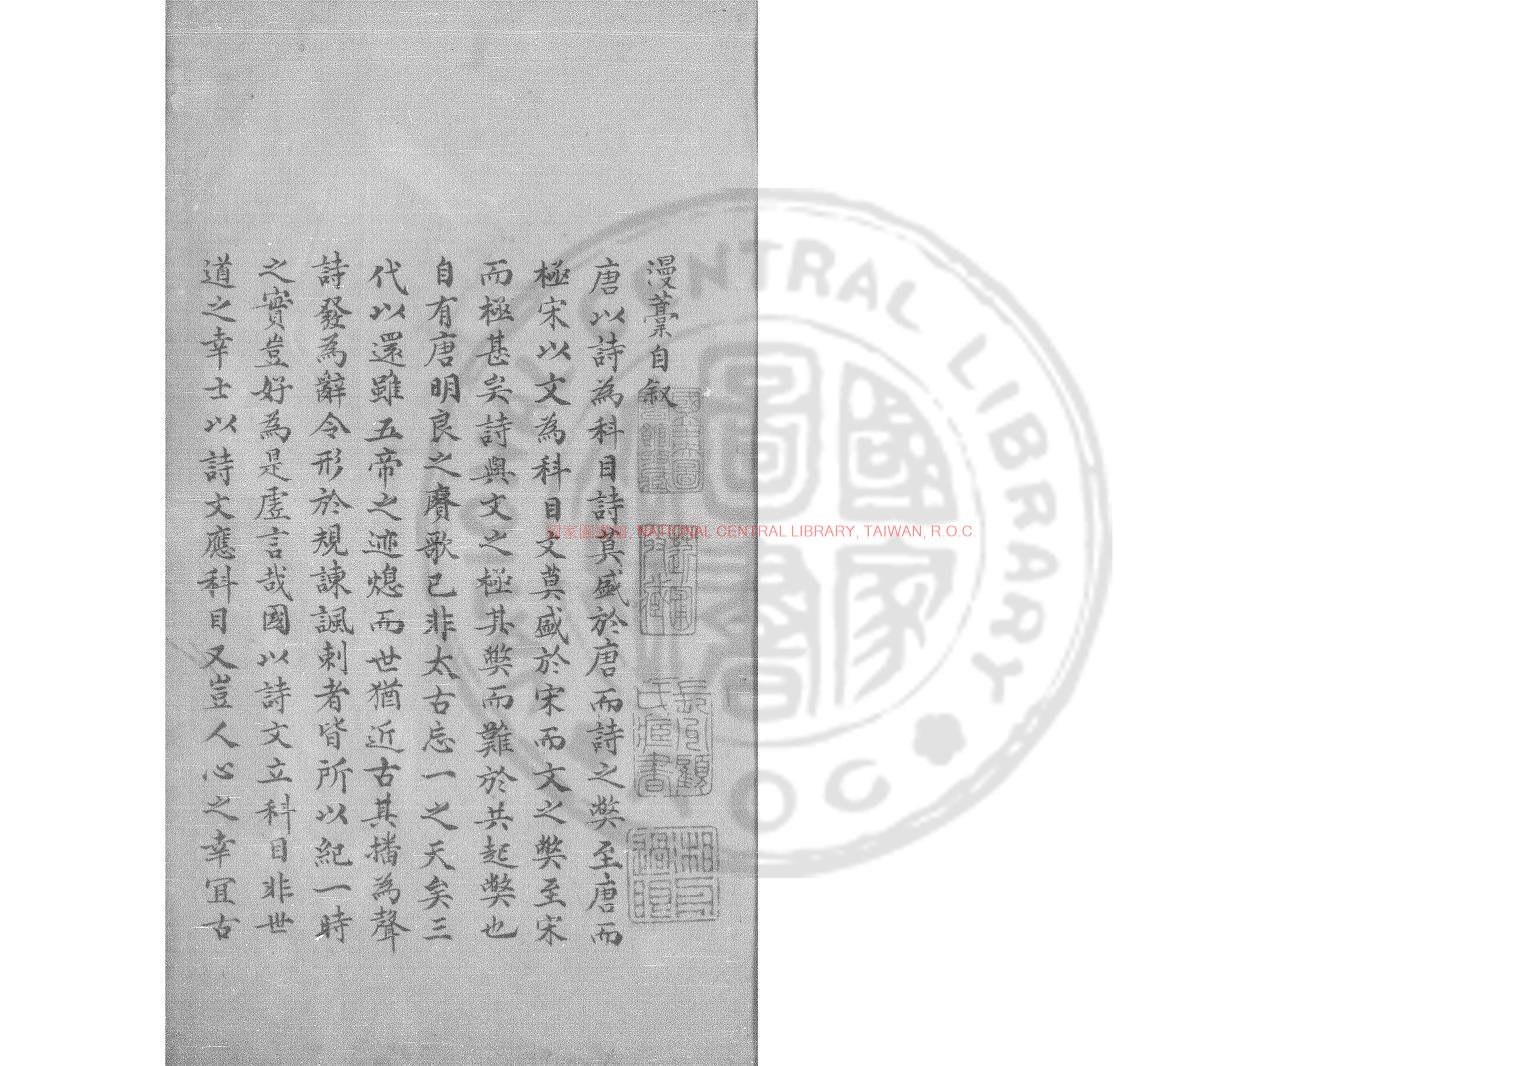 漫藁自叙
唐以詩為科目詩莫盛於唐而詩之獘至唐而
極宋以文為科目文莫盛於宋而文之獘至宋
而極甚矣詩與文之極其獘而難於共起獘也
自有唐明良之賡歌已非太古忘一之天矣三
代以還雖五帝之迹熄而世猶近古其播為聲
詩發為辭令形於規諫諷刺者皆所以紀一時
之實豈好為是虛言哉國以詩文立科目非世
道之幸士以詩文應科目又豈人心之幸冝古
國家圖書館, NATIONAL CENTRAL LIBRARY, TAIWAN, R.O.C.